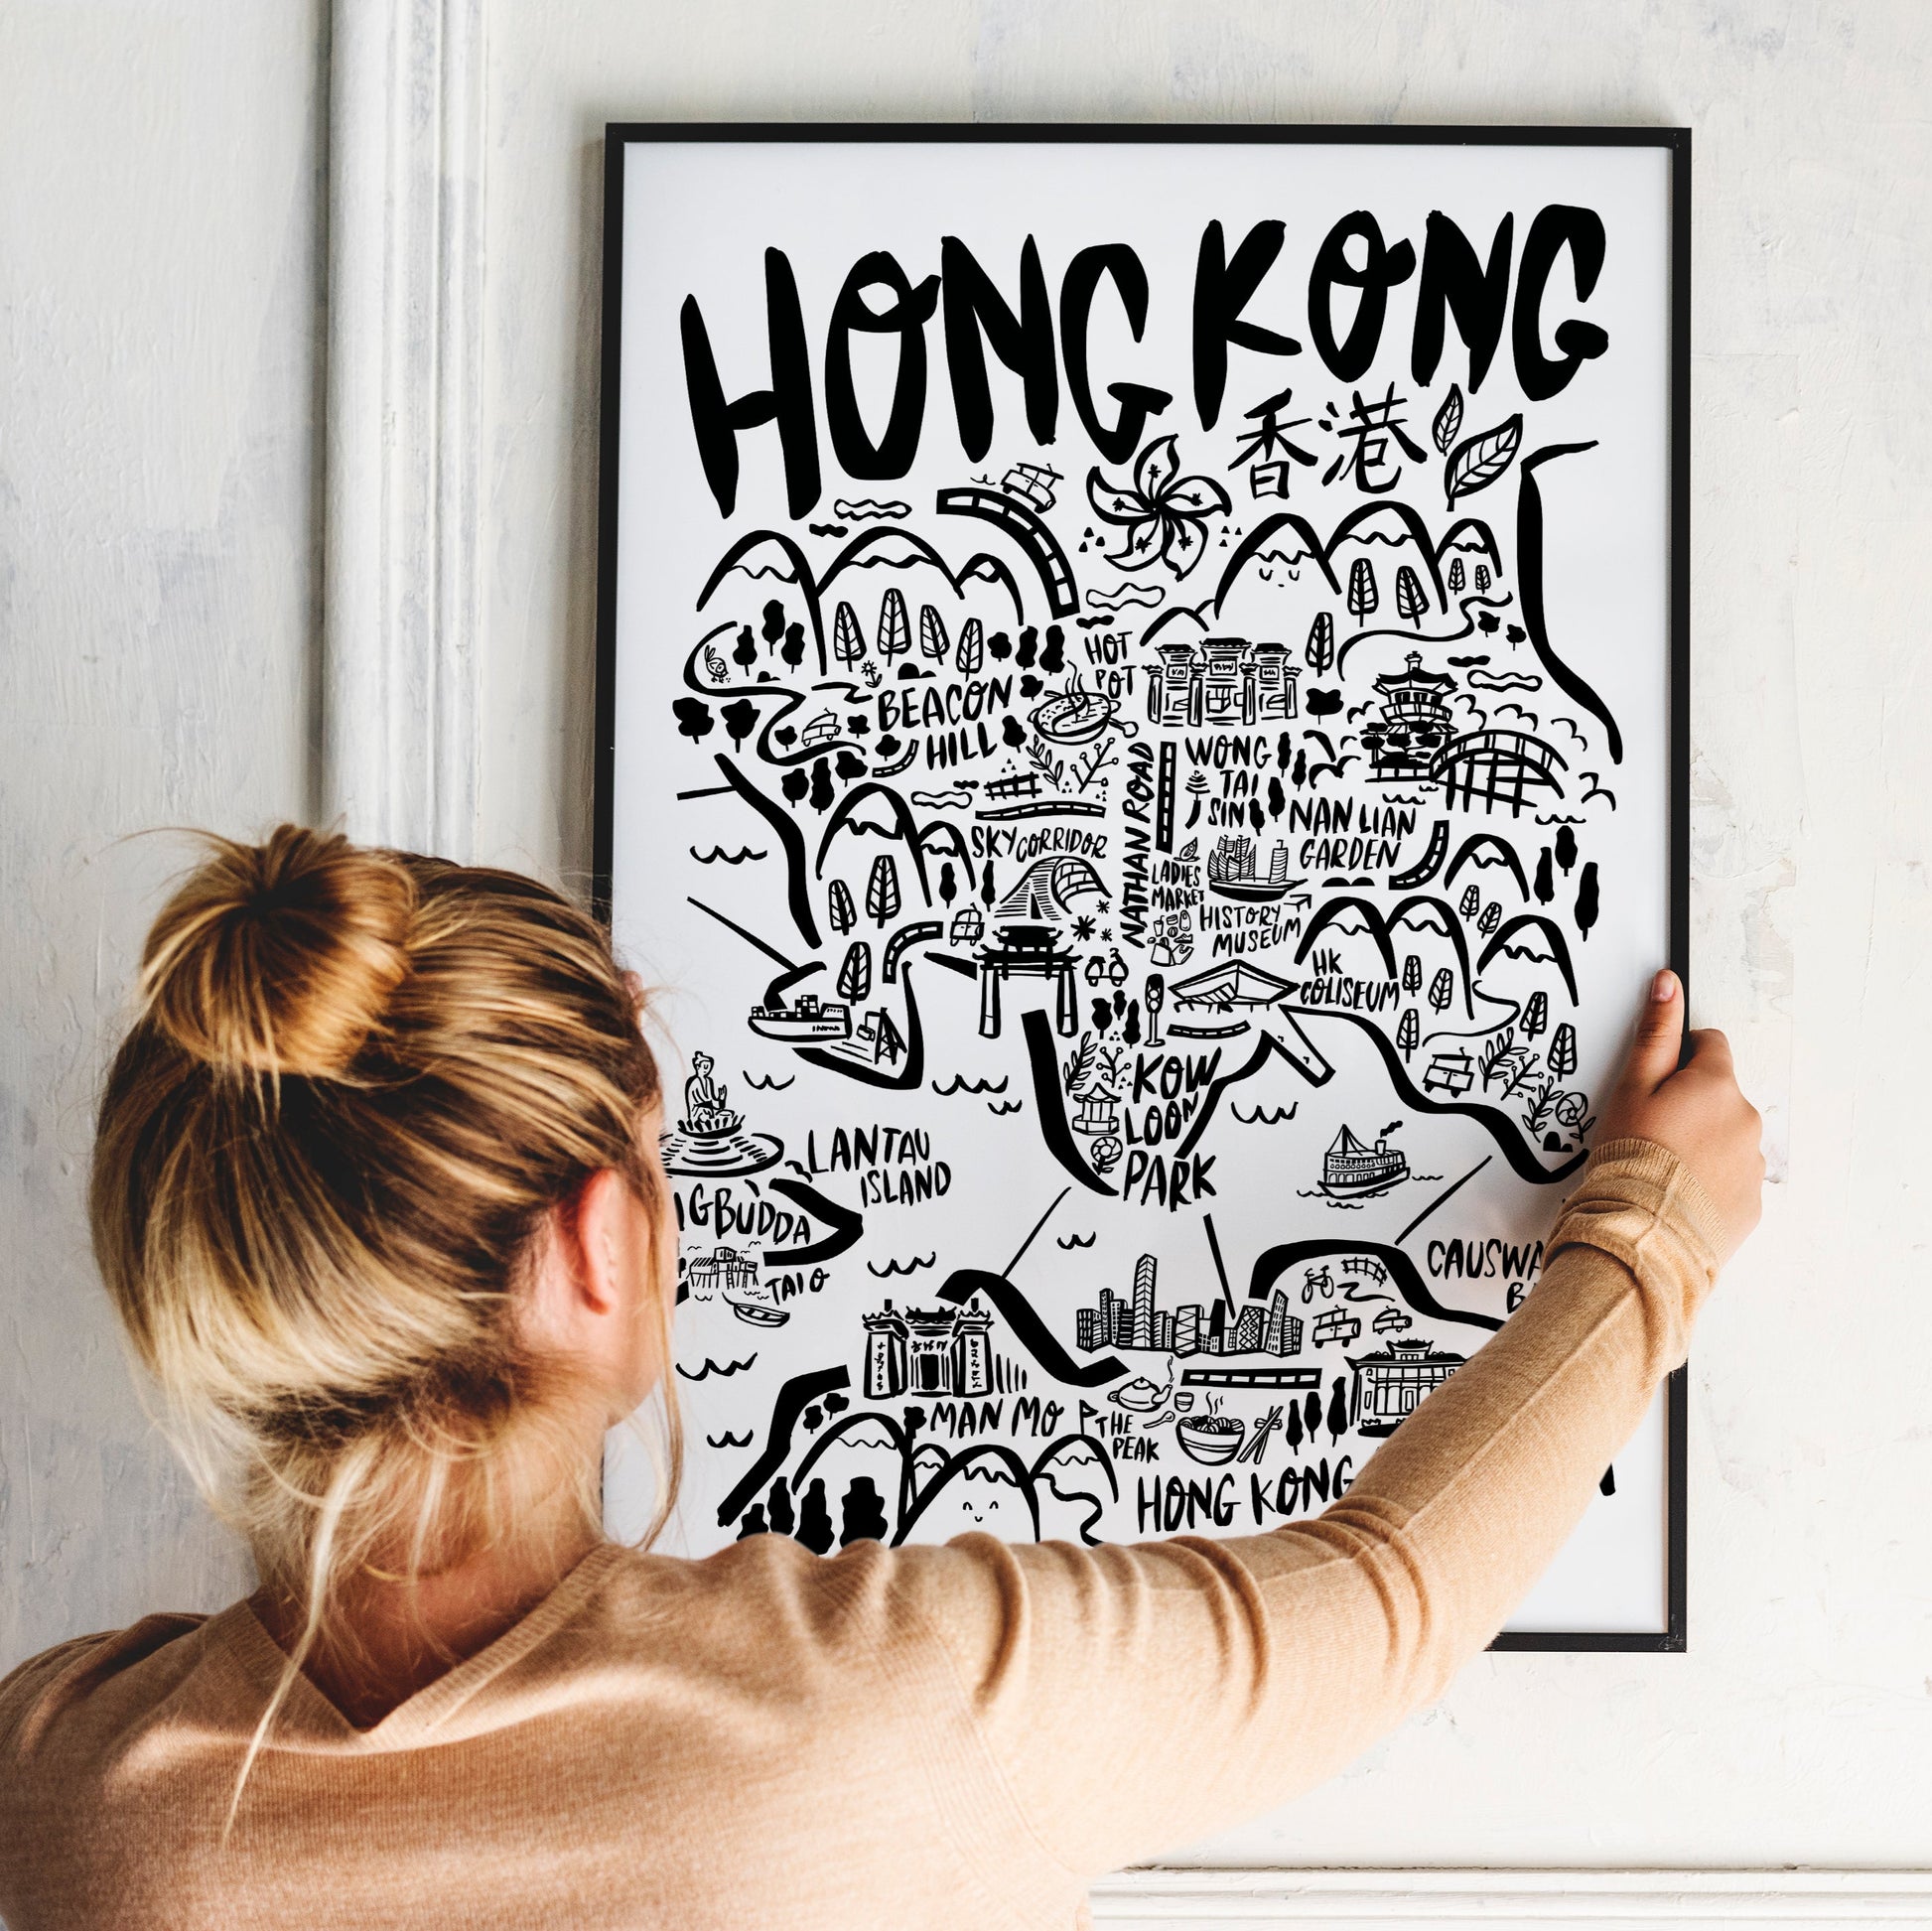 HONG KONG
香港
HOT
POT
BEACON
HILL
NATHAN ROAD
WONG
TAI
SIN
NAN LIAN
GARDEN
SKY CORRIDOR
LADIES
MARKET
HISTORY
MUSEUM
HK
COLISEUM
KOW
LOON
PARK
LANTAU
ISLAND
IGBUDDA
TAI O
CAUSWA
B
MAN MO
THE
PEAK
HONG KONG